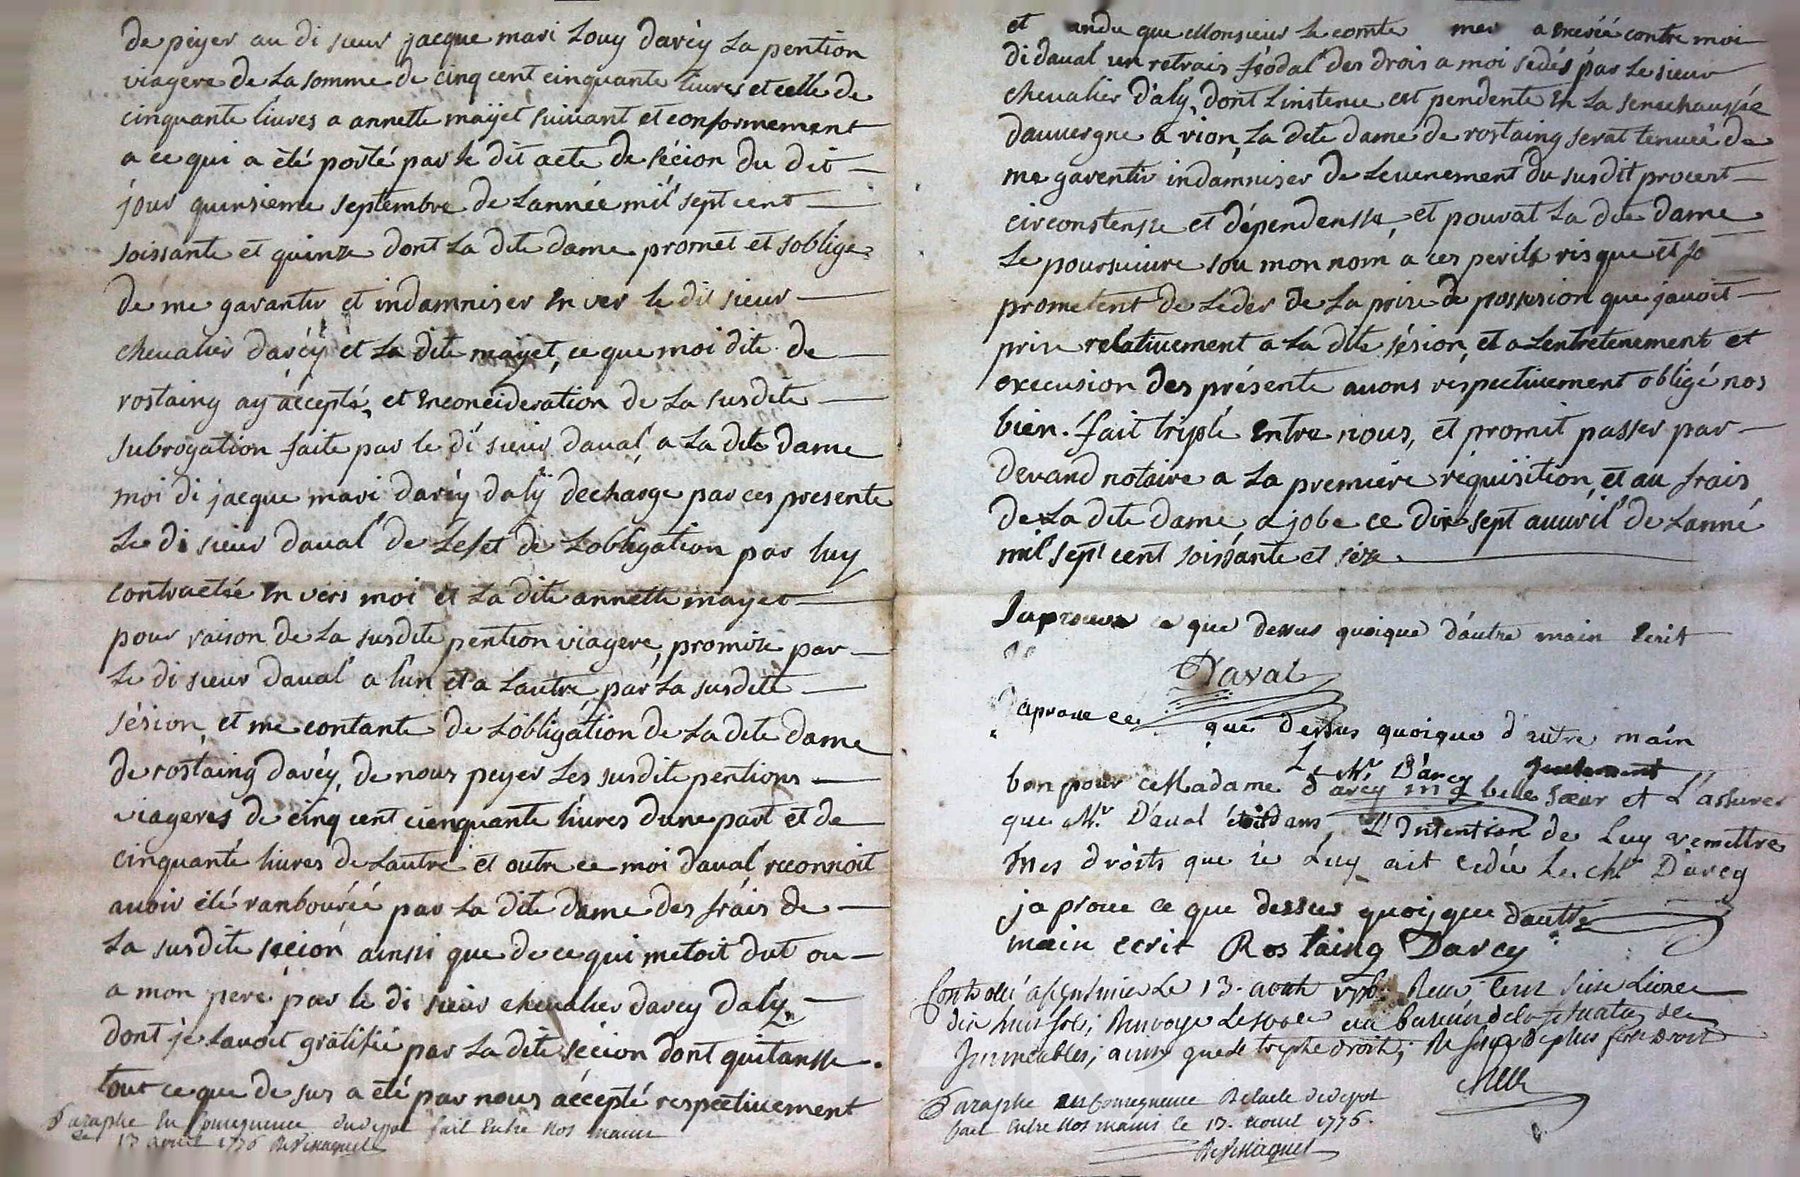 de péyer au di sieur jacque mari Louy darçÿ la pention
viagere de la somme de cinq cent cinquante livres et celle de
cinquante livres a annette mayet suivant et conformement
a ce qui a été porté par le dit acte de sécion du dit
jour quinsieme septembre de lannée mil sept cent
soissante et quinze dont la dite dame promet et soblige
de me garantir et indamniser en ver le dit sieur
chevalier darcÿ et la dite mayet, ce que moi dite de
rostaing ay accepté, et en concideration de la susdite
subrogation faite par le di sieur daval a la dite dame
moi di jacque mari darcÿ dalÿ decharge par ces presente
le di sieur daval de lefet de lobligation par luy
contractée en vers moi et la dite annette mayet
pour raison de la susdite pention viagere, promize par
le di sieur daval a lun et a lautre par la susdite
sésion, et me contante de lobligation de la dite dame
de rostaing darcÿ, de nous peyer les susdite pentions
viageres de cinq cent cienquante livres dune part et de
cinquante livres de lautre et outre ce moi daval reconnoit
avoir été ranbouréé par la dite dame des fráis de
la susdite sécion ainsi que de ce qui metoit dut ou
a mon pere par le di sieur chevalier darcy daly
dont je lavoit gratifié par la dite sécion dont quitansse.
tout ce que de sus a été par nous accépté respectivement
Paraphe en consequence du depot fait entre nos mains
le 13 avril 1776
et andu que Monsieur le comte mer a exercée contre moi
di daval un retrais féodal des drois a moi sédés par le sieur
chevalier d'aly, dont linstence est pendente en la senechaussée
dauvergne a rion, la dite dame de rostaing serat tenuee de
me garentir indamniser de levenement du susdit procert
circonstensse et dépendensse, et pourat la dite dame
le poursuivre sou mon nom a ces perils risque et je
prometent de leder de la prise de possesion que javoit
prise relativement a la dite sésion, et a lentretenement et
execusion des présente avons réspectivement obligé nos
bien. fait triple entre nous, et promit passer par
devand notaire a la premiere réquisition, et au frais
de la dite dame a jobe ce dix sept auvril de lanné
mil sept cent soissante et séze
Japrouve ce que dessus quoique d'autre main ecrit
Daval
Japrouve ce que dessus quoique d'autre main
Le Mr. D'arcy
bon pour ce Madame d'arcy ma belle soeur et l'assurer
que Mr. D'aval étoit dans L'Intention de Luy remettre
mes droits que je Luy ait cedée Le chr D'arcy
japroue ce que dessus quoyque dautre
main ecrit Rostaing Darcy
Controllé a le 13. aout 1776. Reçu seize livres
dix huit sols; Renvoye au bureau de la situation des
Immeubles; ainsi que le triple droit,
Paraphe en consequence de lacte de depot
fait entre nos mains le 13. 1776.